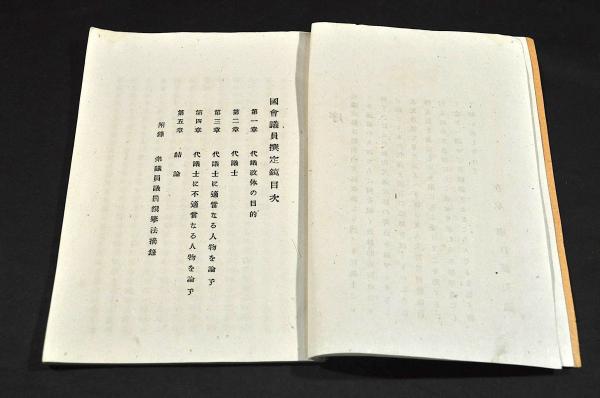 國會議員撰定鏡目次
第一章 代議政体の目的
第二章 代議士
第三章 代議士に適當なる人物を論ず
第四章 代議士に不適當なる人物を論ず
第五章 結論
附錄 衆議員議員撰擧法摘錄
序